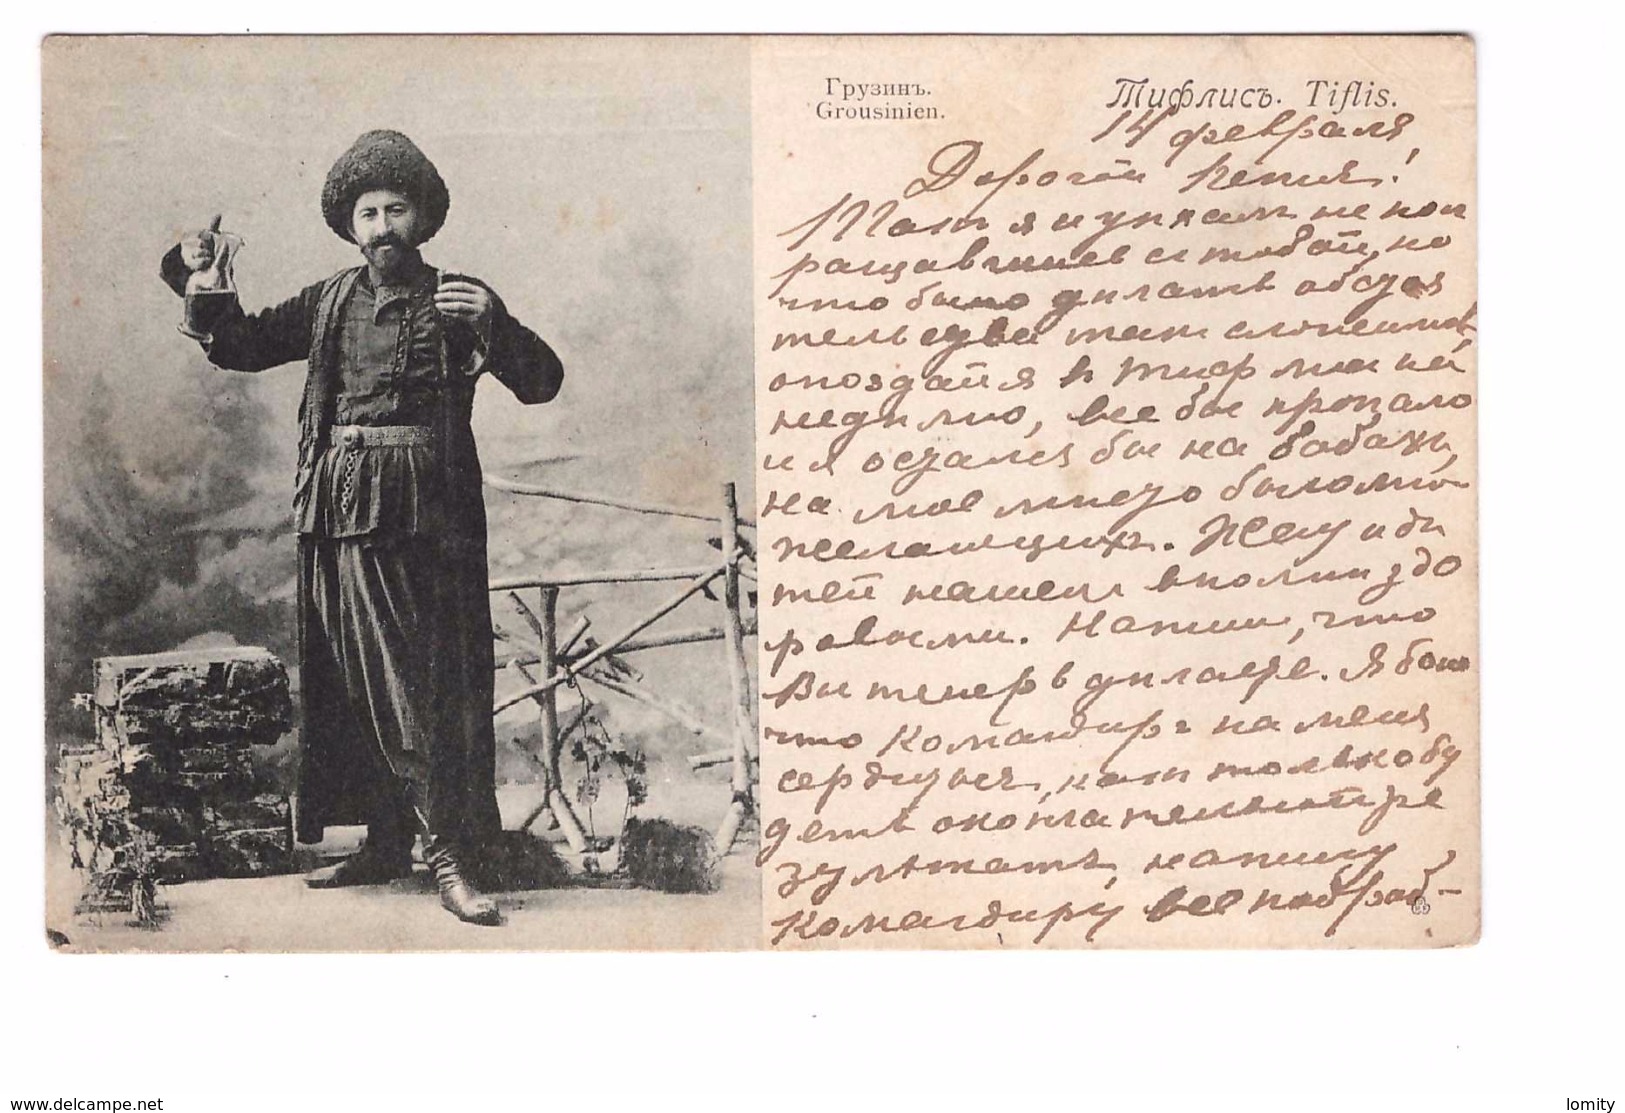 Грузинъ.
Grousinien.
Тифлисъ. Tiflis.
14 февраля,
Дорогой Кепия!
Такъ я и уѣхалъ не поп
рощавшись съ тобой, но
что было дѣлать обстоя
тельства такъ сложились,
опоздай я въ Тифлис на
недѣлю, все бы пропало
и я остался бы на бобахъ,
на мое мѣсто было мно
желающихъ. Жену и дѣ
тей нашелъ вполнѣ здо
ровыми. Напиши, что
Вы теперь дѣлаете. Я боюс
что Командиръ на меня
сердится, какъ только бу
детъ окончательный ре
зультатъ, напишу
Командиру все подроб-
www.delcampe.net
lomity